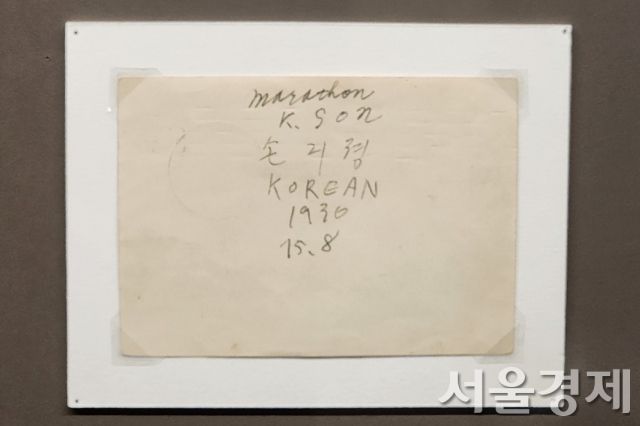 marathon
K. SON
손긔졍
KOREAN
1936
15.8
서울경제